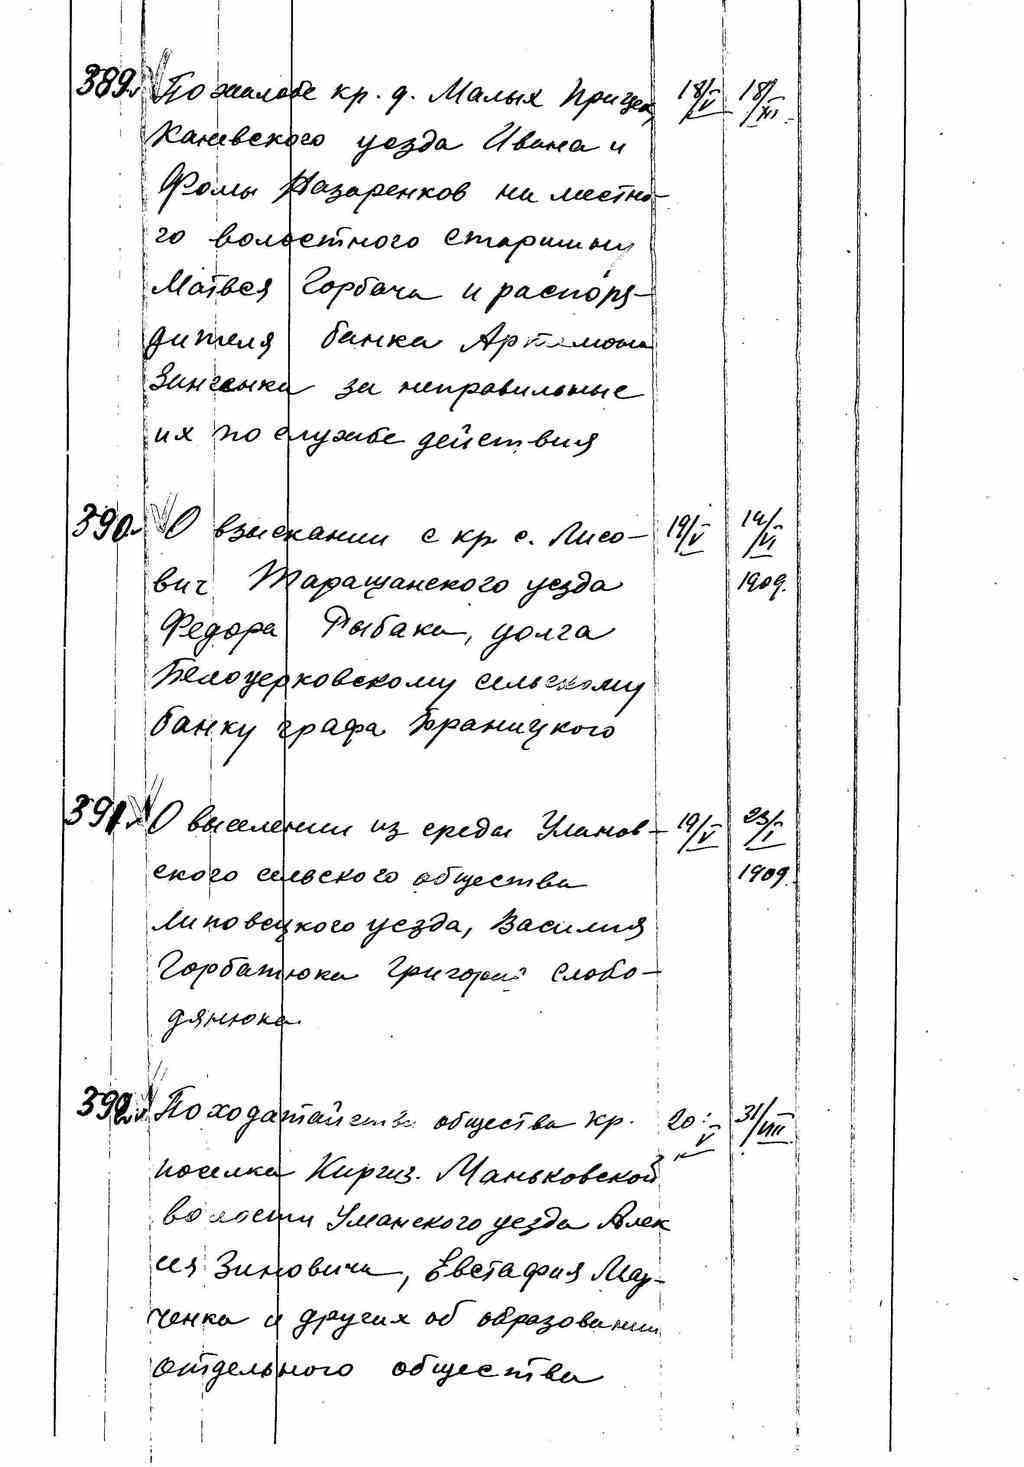 389. По жалобе кр. д. Малых Прицек 18/V 18/XI
Каневского уезда Ивана и
Фомы Назаренков на местно-
го волостного старшину
Матвея Горбача и распоря-
дителя банка Артемона
Зинченка за неправильные
их по службе действия
390. О взыскании с кр с. Лисо- 19/V 14/VI
вич Таращанского уезда 1909.
Федора Рыбака, долга
Белоцерковскому сельскому
банку графа Браницкого
391. О выселении из среды Уланов- 19/V 23/I
ского сельского общества 1909.
Липовецкого уезда, Василия
Горбатюка Григория Слобо-
дянюка.
392. По ходатайству общества кр. 20/V 31/VIII
поселка Киргиз. Маньковской
волости Уманского уезда Алек
сея Зиновича, Евстафия Мар-
ченка и других об образовании
отдельного общества